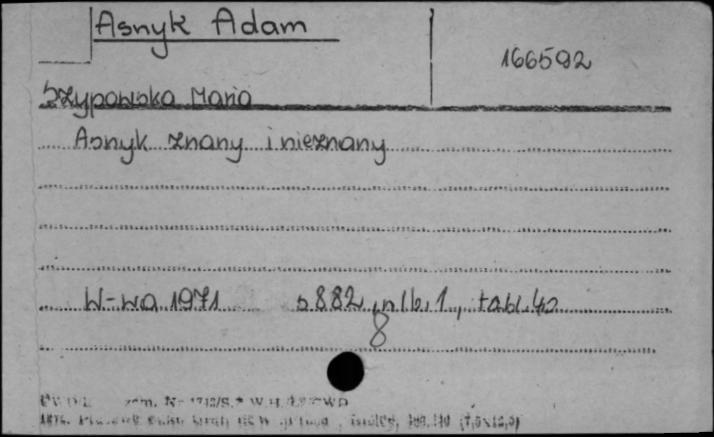 Asnyk Adam
166592
Szypowska Maria
Asnyk znany i nieznany
W-wa 1971 s 882, nlb. 1, tabl. 40
8
zam. Nr 1712/S.